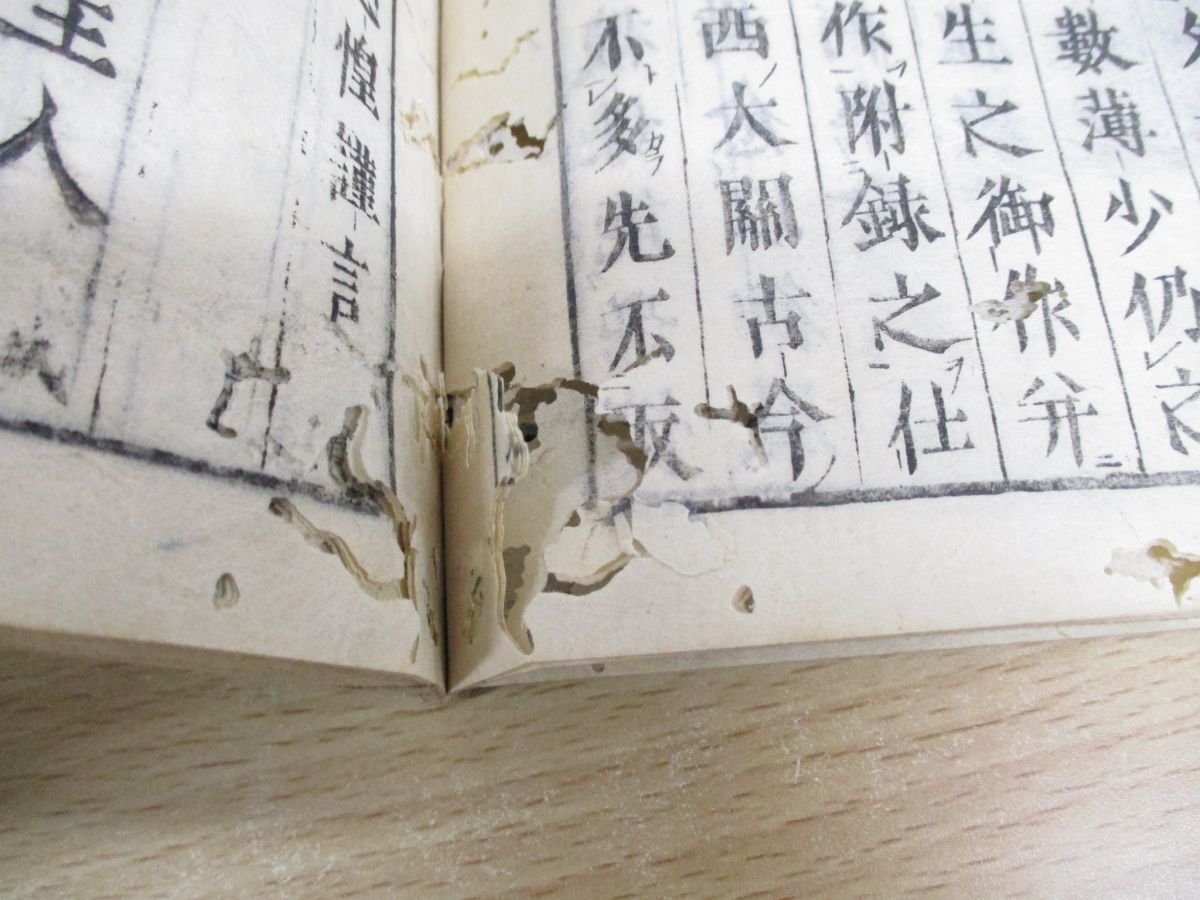 數薄少仍之
生之御作并
作附録之仕
西大關古今
不多先不
惶謹言
主人